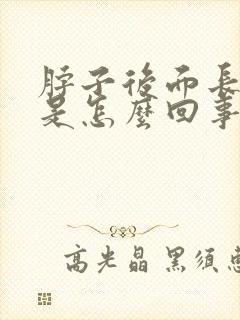 脖子後面長
是怎麼回事
高光晶 黑須